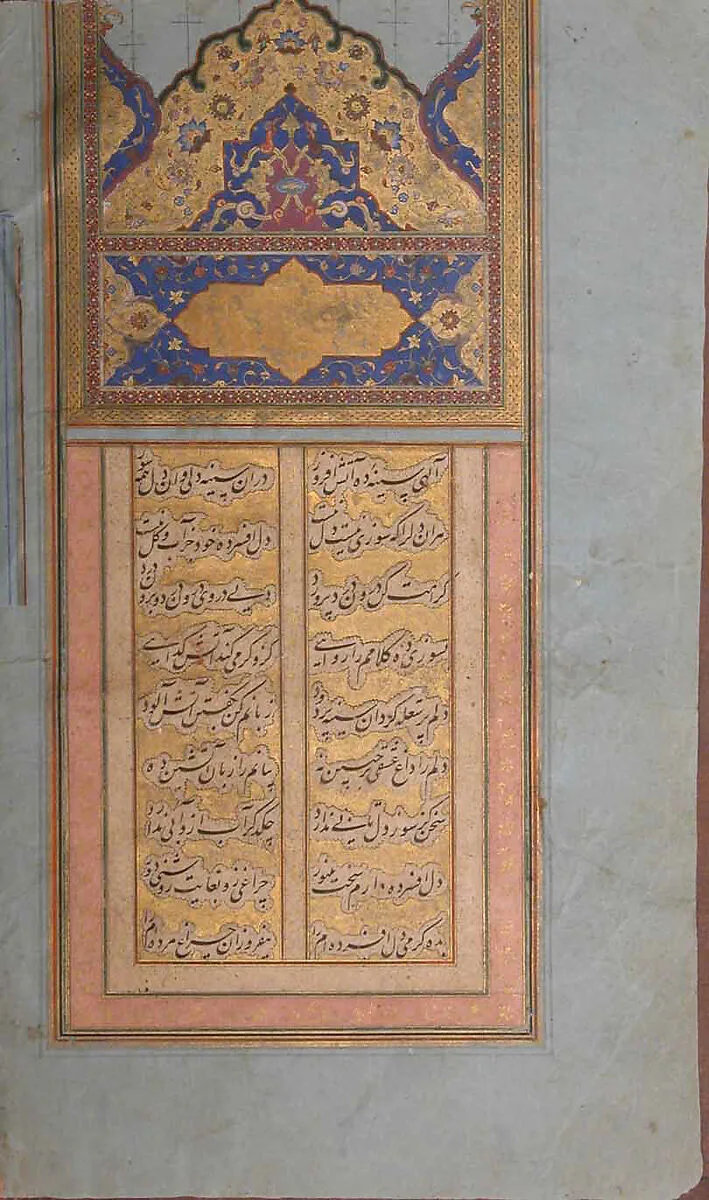 الهی سینه ده آتش افروز دران سینه دلی وان دل همه سوز
هران دلرا که سوزی نیست دل نیست دل افسرده خود جز آب و گل نیست
کرامت کن درونی درد پرورد دلی در وی درون درد و برون درد
بسوزی ده کلامم را روایی کزو گرمی کند آتش گدایی
دلم پر شعله گردان سینه پر دود زبانم کن بگفتن آتش آلود
دلم را داغ عشقی بر جبین نه بیانم را زبان آتشین ده
سخن کز سوز دل تابی ندارد چکد گر آب ازو آبی ندارد
دل افسرده دارم سخت بینور چراغی زو بغایت روشنی دور
بده گرمی دل افسرده ام را بفروزان چراغ مرده ام را